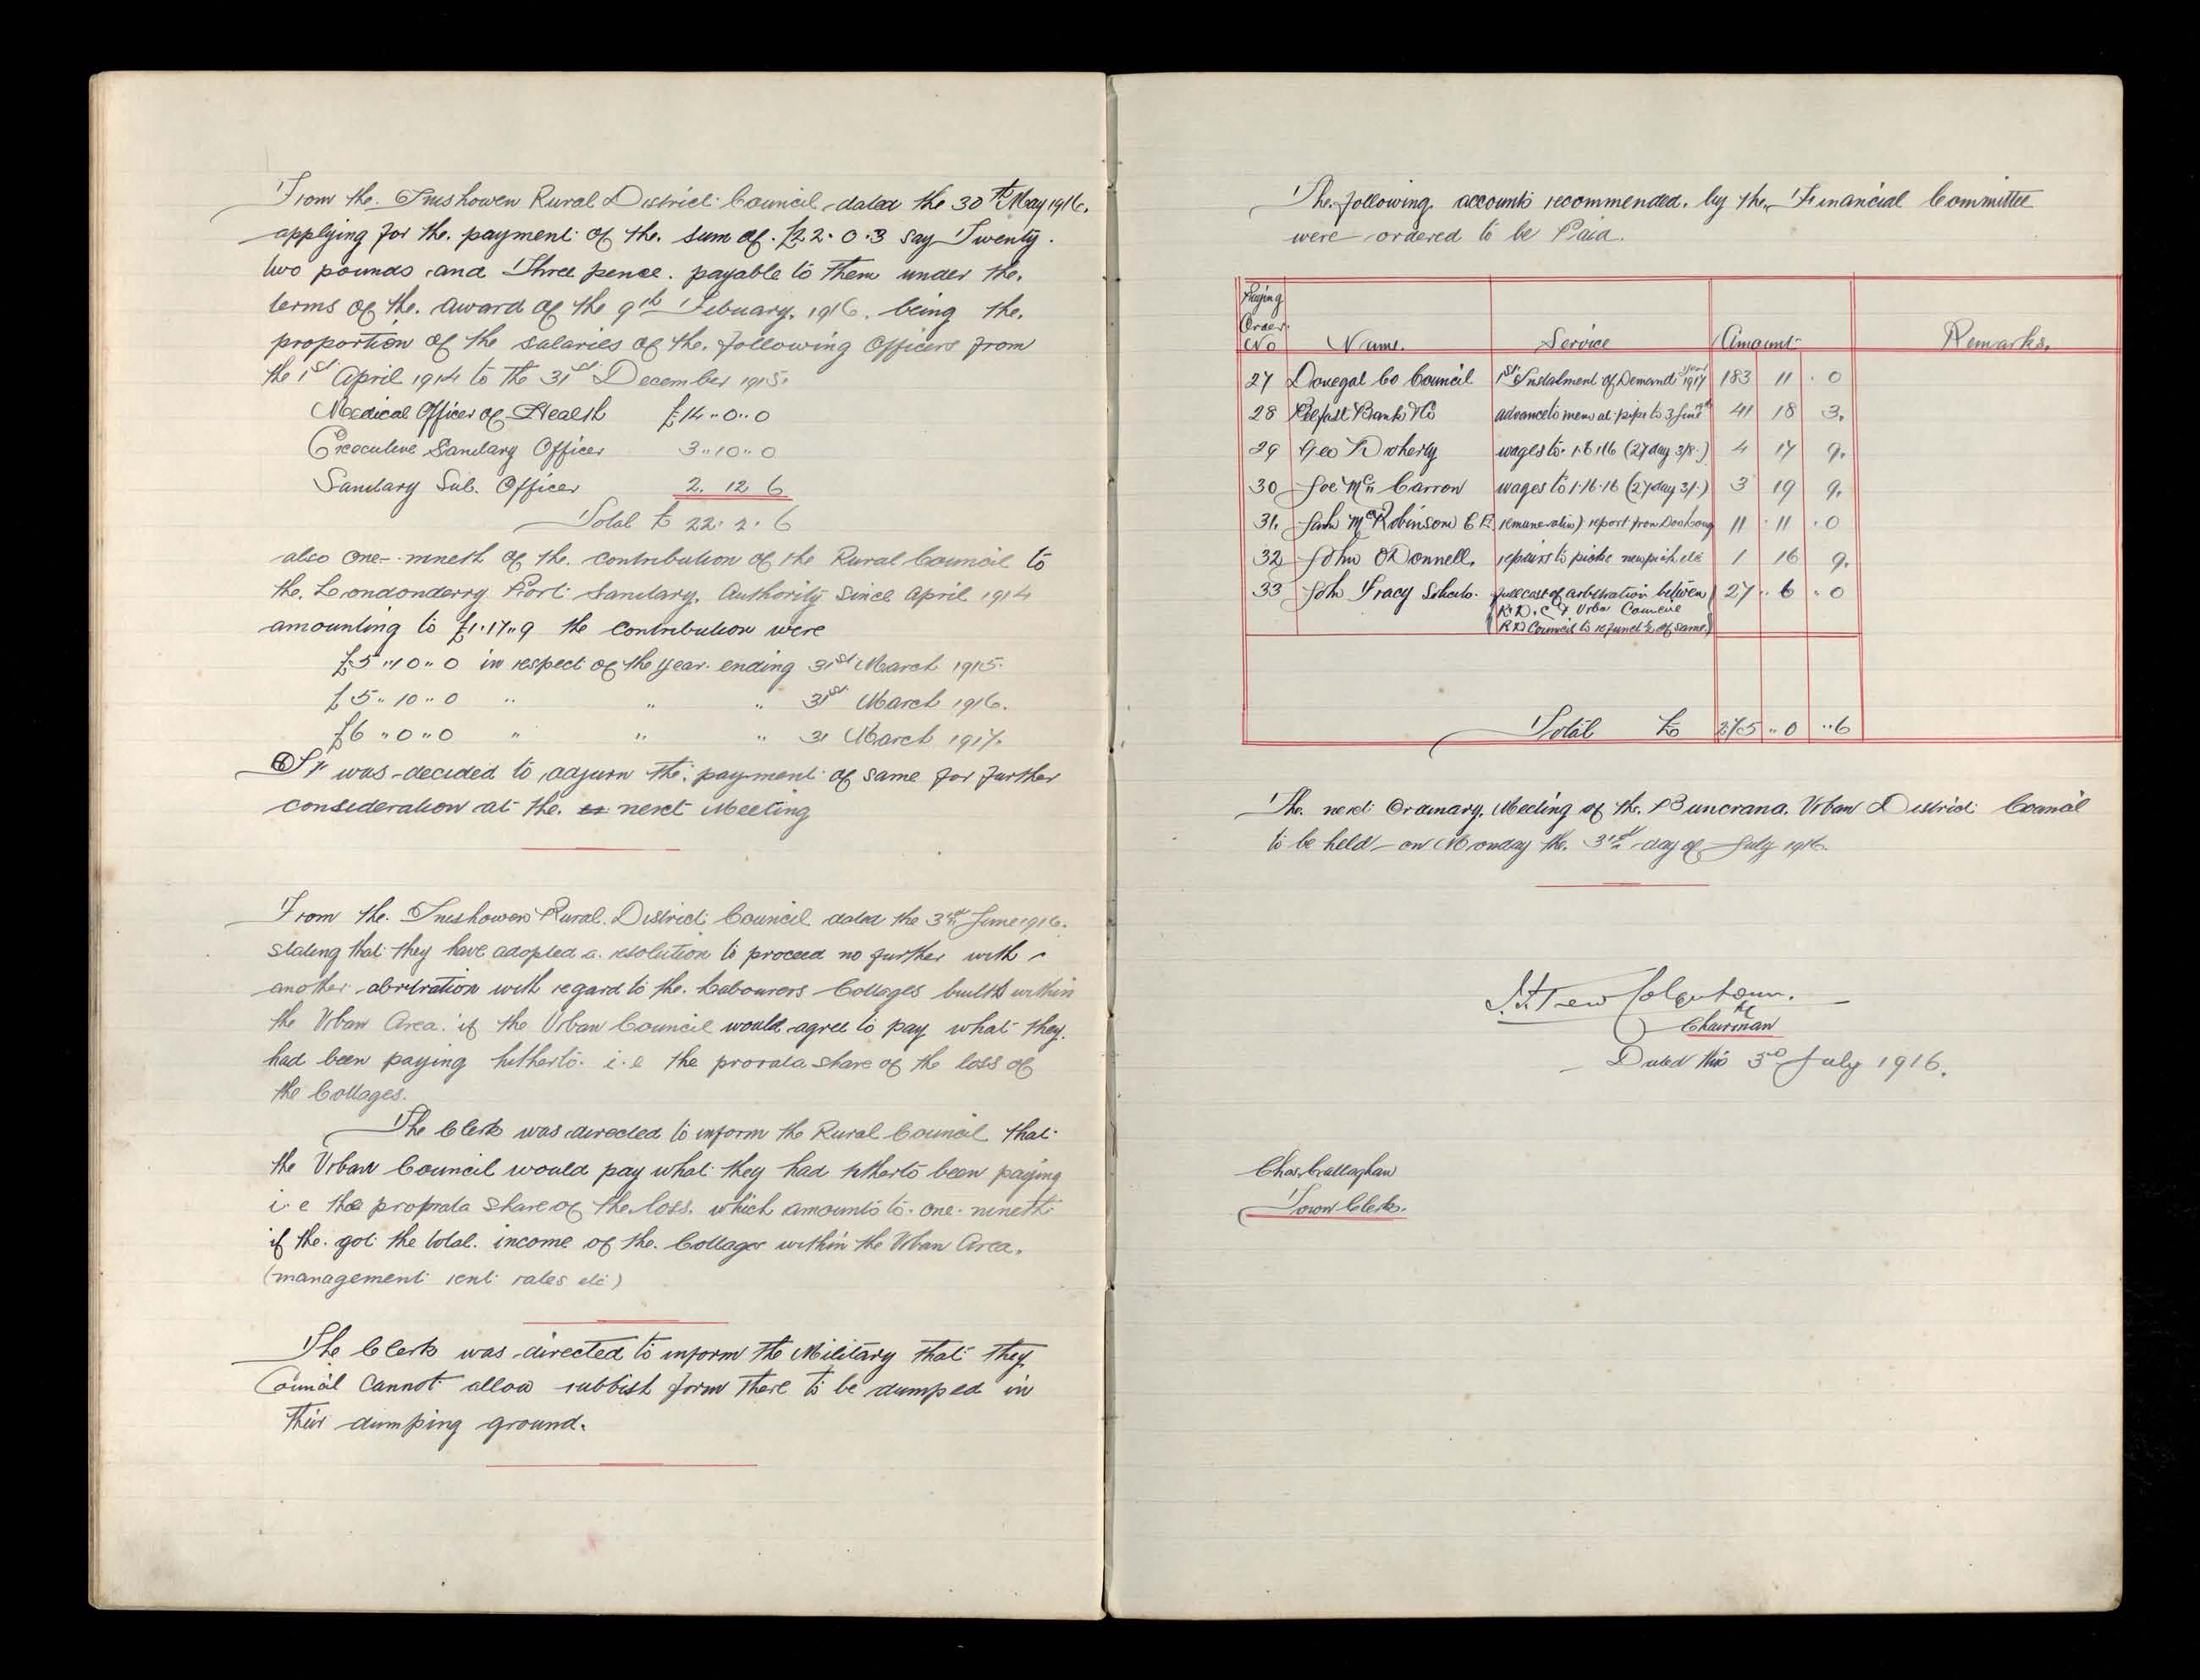 From the. Inishowen Rural District Council dated the 30th May 1916.
applying for the. payment of the. sum of. £22. 0. 3 say Twenty.
two pounds and Three pence. payable to them under the.
terms of the. award of the 9th Febuary. 1916. being the.
proportion of the salaries of the. following Officers from
the 1st April 1914 to the 31st December 1915.
Medical Officer of Health £14..0..0
Executive Sanitary Officer 3..10..0
Sanitary Sub. Officer 2. 12 6
Total £ 22. 2. 6
also one - nineth of the. contribution of the Rural Council to
the. Londonderry Port Sanitary. Authority since April 1914
amounting to £1.17..9 the contribution were
£5..10..0 in respect of the year. ending 31st March 1915.
£5..10..0 " " " 31st March 1916.
£6..0..0 " " " 31 March 1917.
It was decided to adjurn the. payment of same for further
consideration at the. next Meeting
From the. Inishowen Rural. District Council dated the 3rd June 1916.
stating that they have adopted a. resolution to proceed no further with
another abritration with regard to the. Labourers Cottages built within
the Urban Area. if the Urban Council would agree to pay what they.
had been paying hitherto. i.e the prorata share of the loss of
the Cottages.
The Clerk was directed to inform the Rural Council that
the Urban Council would pay what they had hitherto been paying
i.e the proprata share of the loss. which amounts to. one. nineth
if the. got the total. income of the. Cottages within the Urban Area.
(management rent rates etc)
The Clerk was directed to inform the Military that they
Council cannot allow rubbish form there to be dumped in
their dumping ground.
The following accounts recommended. by the. Financial Committee
were ordered to be Paid.
Paying
Order.
No Name. Service Amount Remarks.
27 Donegal Co Council 1st Instalment of Demand year 1917 183 11 . 0
28 Belfast Bank Co advance to men at pipe to 3 June 41 18 3.
29 Geo Doherty wages to. 1.6.16 (27 day 3/8.) 4 17 9.
30 Joe Mc Carron wages to 1.16.16 (27 day 3/.) 3 19 9.
31. Robinson C E. remuneration) report from 11 . 11 . 0
32 John ODonnell. repairs to picks new pick etc 1 16 9.
33 John Tracy Solicito. full cost of arbitration between 27 .. 6 .. 0
R.D.C & Urban Council
R D Council to refund ½ of same.)
Total £ 275 .. 0 .. 6
The. next Ordinary. Meeting of the. Buncrana. Urban District Council
to be held on Monday the. 3rd day of July 1916.
Colquhoun.
Chairman
Dated this 3rd July 1916.
Chas. Callaghan
Town Clerk.